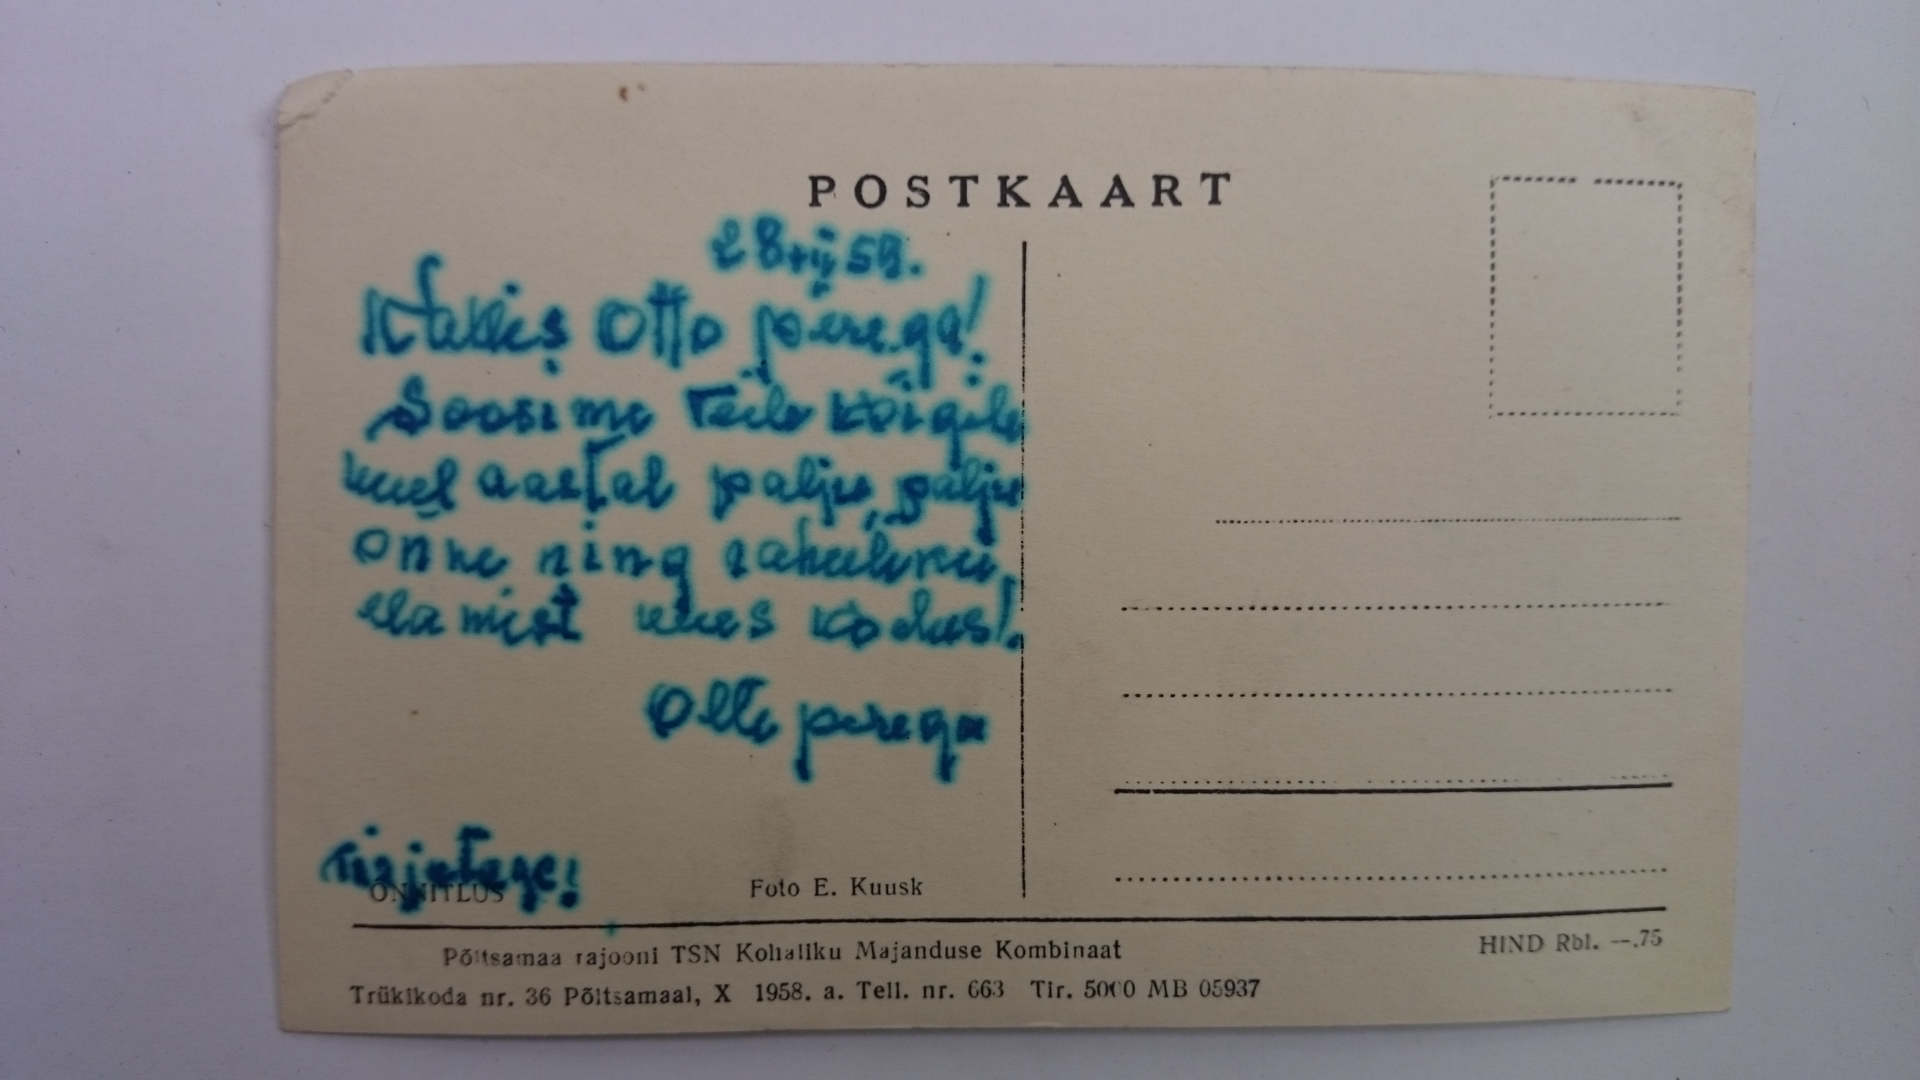 POSTKAART
28 XII 59.
Kallis Otto perega!
Soosime Teile kõigile
uuel aastal palju, palju
õnne ning rahulikku
elamist uues kodus!
Olli perega
Kirjutage!
ÕNNITLUS
Foto E. Kuusk
Põltsamaa rajooni TSN Kohaliku Majanduse Kombinaat
HIND Rbl. —.75
Trükikoda nr. 36 Põltsamaal, X 1958. a. Tell. nr. 663 Tir. 5000 MB 05937